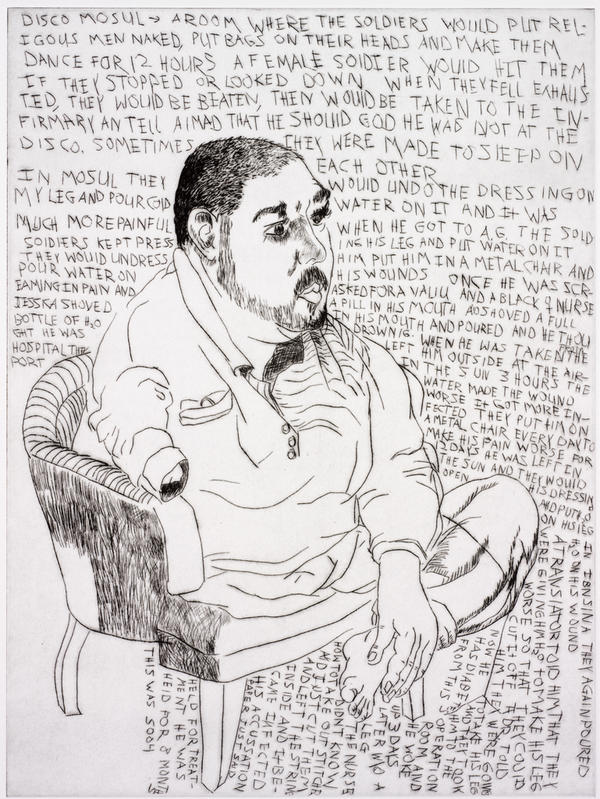 DISCO MOSUL → A ROOM WHERE THE SOLDIERS WOULD PUT REL-
IGOUS MEN NAKED, PUT BAGS ON THEIR HEADS AND MAKE THEM
DANCE FOR 12 HOURS A FEMALE SOLDIER WOULD HIT THEM
IF THEY STOPPED OR LOOKED DOWN WHEN THEY FELL EXHAUS
TED, THEY WOULD BE BEATEN, THEN WOULD BE TAKEN TO THE IN-
FIRMARY AN TELL THAT HE SHOULD GOD HE WAS NOT AT THE
DISCO. SOMETIMES THEY WERE MADE TO SLEEP ON
EACH OTHER
IN MOSUL THEY WOULD UNDO THE DRESSING ON
MY LEG AND POUR COLD WATER ON IT AND IT WAS
MUCH MORE PAINFUL WHEN HE GOT TO A.G. THE SOLD
SOLDIERS KEPT PRESS ING HIS LEG AND PUT WATER ON IT
THEY WOULD UNDRESS HIM PUT HIM IN A METAL CHAIR AND
POUR WATER ON HIS WOUNDS ONCE HE WAS SCR-
EAMING IN PAIN AND ASKED FOR A VALIU AND A BLACK NURSE
JESSKA SHOVED A PILL IN HIS MOUTH SHOVED A FULL
BOTTLE OF H2O IN HIS MOUTH AND POURED AND HE THOU
GHT HE WAS DROWNIG. WHEN HE WAS TAKEN THE
HOSPITAL THE LEFT HIM OUTSIDE AT THE AIR-
PORT IN THE SUN 3 HOURS THE
WATER MADE THE WOUND
WORSE IT GOT MORE IN-
FECTED THEY PUT HIM ON
A METAL CHAIR EVERY DAY TO
MAKE HIS PAIN WORSE FOR
3 DAYS HE WAS LEFT IN
THE SUN AND THEY WOULD
OPEN HIS DRESSING
AND PUT H2O
ON HIS LEG
IN IBNSINA THEY AGAIN POURED
H2O ON HIS WOUND
A TRANSLATOR TOLD HIM THAT THEY
WERE GIVING HIM H2O TO MAKE HIS LEG
WORSE SO THAT THEY COULD
CUT IT OFF A DR TOLD
HIM THEY WERE GOING
TO TAKE HIS LEG
NOW HE
HAS DIABETES
FROM THIS
AND THEY TOOK
HIM TO THE
OPERATION
ROOM AND
HE WOKE
UP 3 DAYS
LATER W/O A
LEG
THE NURSE
DIDN'T KNOW
HOW TO TAKE OUT STITCHES
AND JUST CUT THEM
AND LEFT THE STRING
INSIDE AND IT BE-
CAME INFECTED
HIS ACCUSSATION
SAID
HELD FOR TREAT-
MENT HE WAS
HELD FOR 8 MONTHS
THIS WAS 2004